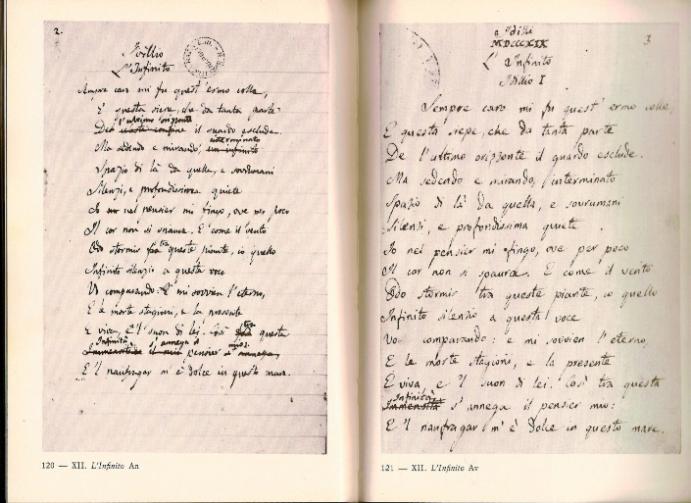 2.
Idillio
L'Infinito
Sempre caro mi fu quest'ermo colle,
E questa siepe, che da tanta parte
l'ultimo orizzonte
Del il guardo esclude.
interminato
Ma sedendo e mirando, un infinito
Spazio di là da quella, e sovrumani
Silenzi, e profondissima quiete
Io nel pensier mi fingo, ove per poco
Il cor non si spaura. E come il vento
Odo stormir tra queste piante, io quello
Infinito silenzio a questa voce
Vo comparando: E mi sovvien l'eterno,
E le morte stagioni, e la presente
E viva, e 'l suon di lei. Così tra questa
Infinità s'annega il mio:
Immensità il mio pensier s'annega,
E 'l naufragar m'è dolce in questo mare.
120 — XII. L'Infinito An
3
Idilli
MDCCCXIX
L'Infinito
Idillio I
Sempre caro mi fu quest'ermo colle,
E questa siepe, che da tanta parte
De l'ultimo orizzonte il guardo esclude.
Ma sedendo e mirando, l'interminato
Spazio di là da quella, e sovrumani
Silenzi, e profondissima quiete
Io nel pensier mi fingo, ove per poco
Il cor non si spaura. E come il vento
Odo stormir tra queste piante, io quello
Infinito silenzio a questa voce
Vo comparando: e mi sovvien l'eterno,
E le morte stagioni, e la presente
E viva, e 'l suon di lei. Così tra questa
Infinità
Immensità s'annega il pensier mio:
E 'l naufragar m'è dolce in questo mare.
121 — XII. L'Infinito Av